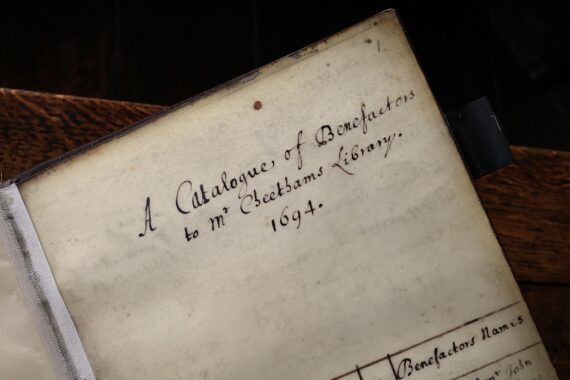 1.
A Catalogue of Benefactors
to Mr Cheethams Library.
1694.
Benefactors Names
Mr John